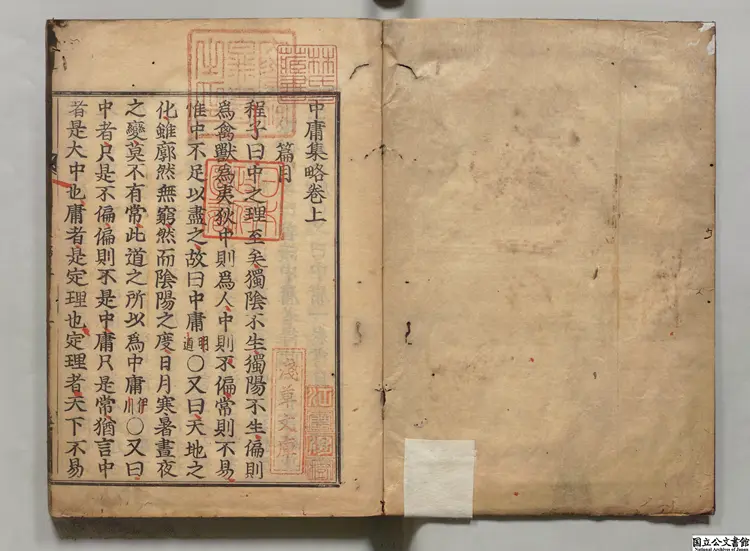 中庸集略卷上
篇目
程子曰中之理至矣獨陰不生獨陽不生偏則
爲禽獸爲夷狄中則爲人中則不偏常則不易
惟中不足以盡之故曰中庸明道○又曰天地之
化雖廓然無窮然而陰陽之度日月寒暑晝夜
之變莫不有常此道之所以爲中庸伊川○又曰
中者只是不偏偏則不是中庸只是常猶言中
者是大中也庸者是定理也定理者天下不易
林氏藏書
淺草文庫
国立公文書館
National Archives of Japan